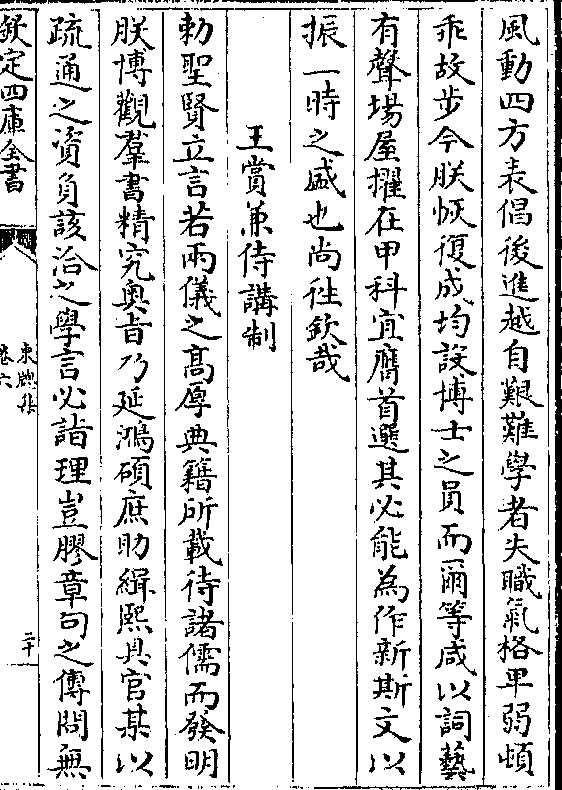 風動四方表倡後進越自艱難學者失職氣格卑弱頓
乖故步今朕恢復成均設博士之員而爾等咸以詞藝
有聲場屋擢在甲科宜膺首選其必能為作新斯文以
振一時之盛也尚往欽哉
王賞兼侍講制
勅聖賢立言若兩儀之高厚典籍所載待諸儒而發明
朕博觀羣書精究奥旨乃延鴻碩庶助緝熙具官某以
疏通之資負該洽之學言必詣理豈膠章句之傳問無
欽定四庫全書
東牕集
卷六
二十